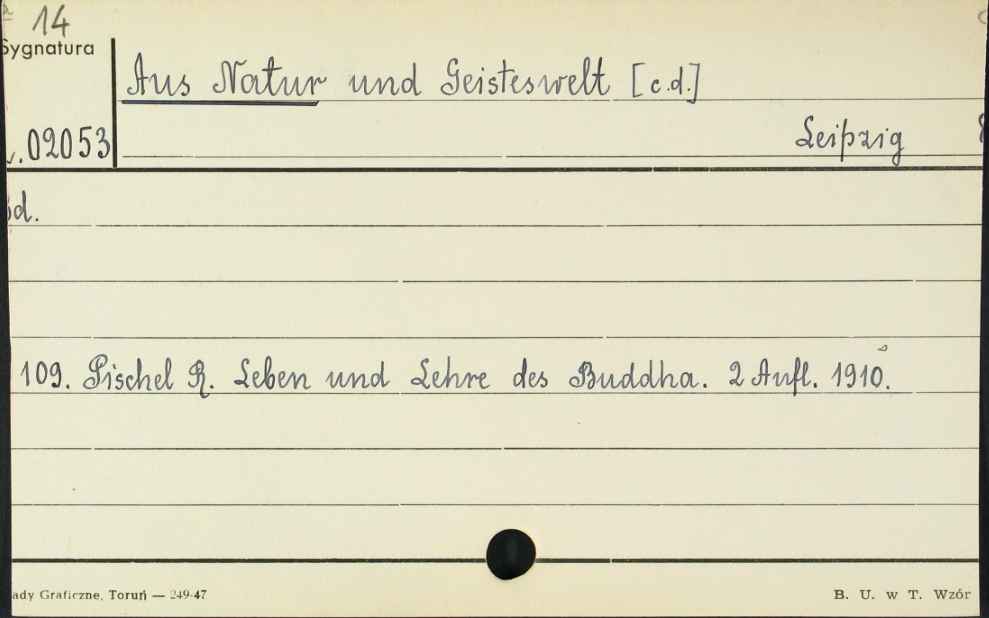 14
Sygnatura
Aus Natur und Geisteswelt [c.d.]
02053
Leipzig
Bd.
109. Pischel R. Leben und Lehre des Buddha. 2 Aufl. 1910.
ady Graficzne, Toruń — 249-47
B. U. w T. Wzór